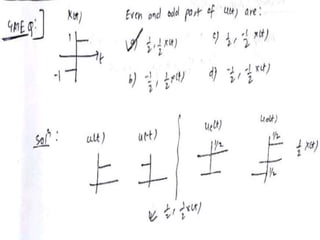 GATE Q:]
x(t)
1
t
-1
Even and odd part of u(t) are:
a) 1/2, 1/2 x(t)
c) 1/2, -1/2 x(t)
b) -1/2, 1/2 x(t)
d) -1/2, -1/2 x(t)
Solⁿ:
u(t)
u(-t)
ue(t)
1/2
uo(t)
1/2
-1/2
1/2 x(t)
1/2, 1/2 x(t)